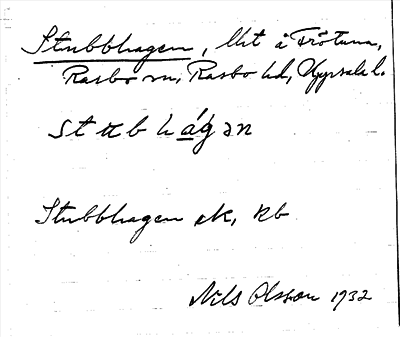 Stubbhagen, lht å Frötuna,
Rasbo sn, Rasbo hd, Uppsala l.
stubhágən
Stubbhagen sk, kb
Nils Olsson 1932